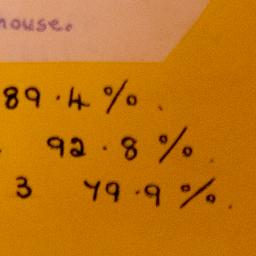 house.
89.4%.
92.8%.
3 79.9%.